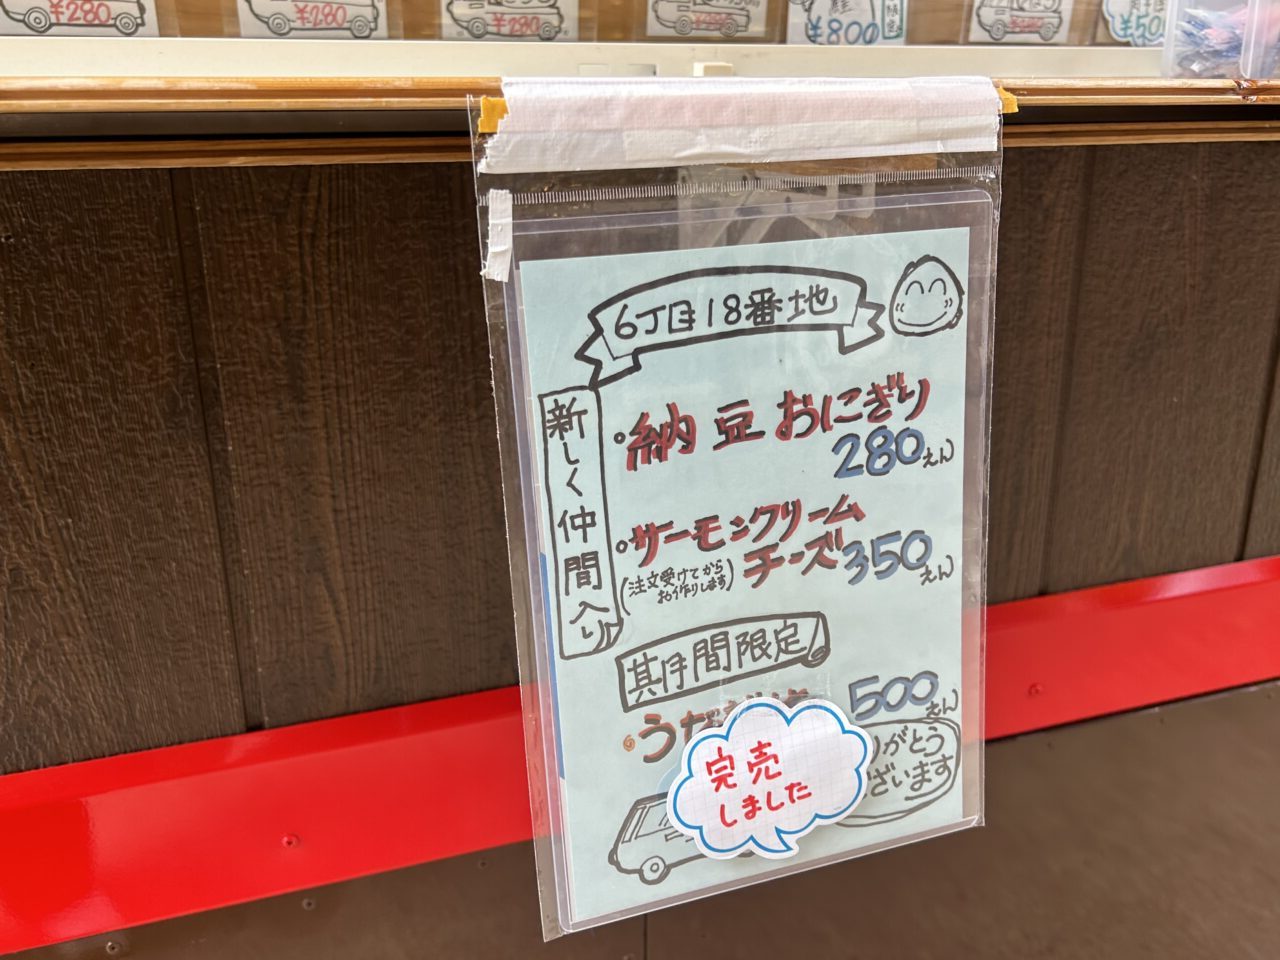 ¥280
¥280
¥280
¥280
¥800
¥280
¥50
6丁目18番地
新しく仲間入り
納豆おにぎり
280えん
サーモンクリーム
チーズ 350えん
(注文受けてから
お作りします)
期間限定
500えん
完売
しました
がとう
ざいます